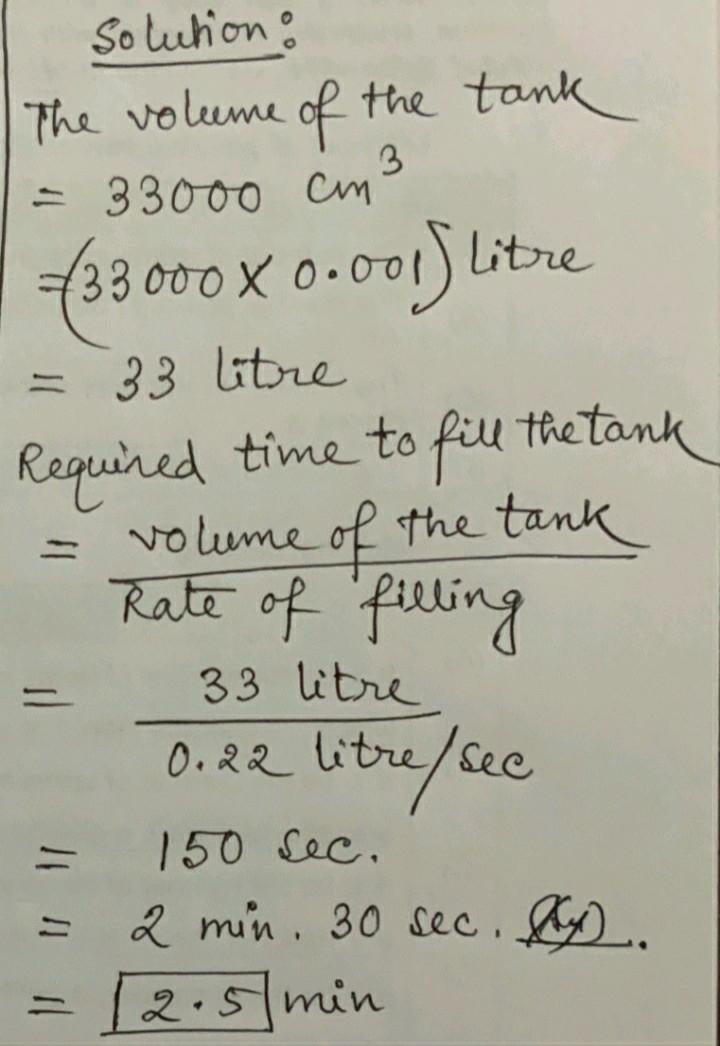 Solution:
The volume of the tank
= 33000 cm³
= (33000 X 0.001) litre
= 33 litre
Required time to fill the tank
= volume of the tank
Rate of filling
= 33 litre
0.22 litre/sec
= 150 sec.
= 2 min. 30 sec.
= 2.5 min